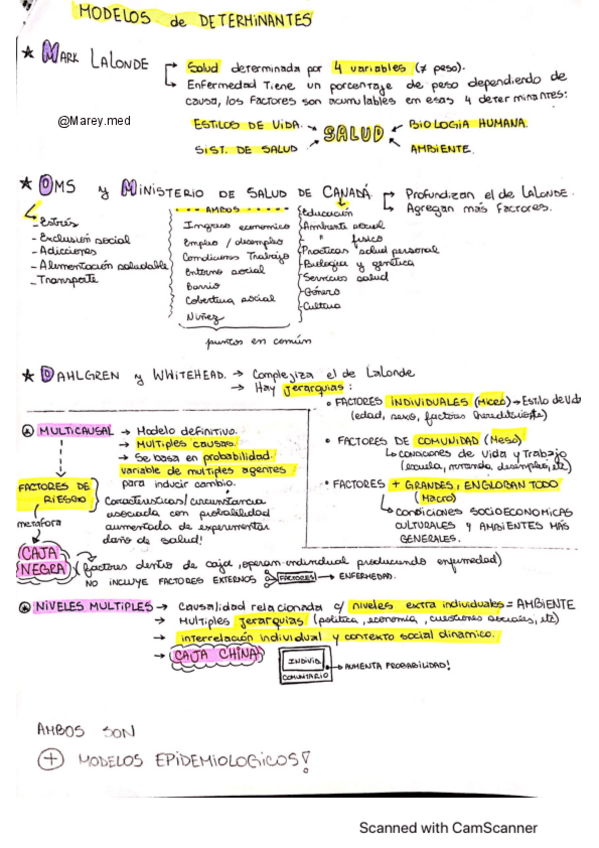 MODELOS de DETERMINANTES
★ MARK LALONDE → Salud determinada por 4 variables (≠ peso).
→ Enfermedad tiene un porcentaje de peso dependiendo de
causa, los factores son acumulables en esas 4 determinantes:
@Marey.med
ESTILOS DE VIDA. → SALUD ← BIOLOGIA HUMANA.
SIST. DE SALUD → ← AMBIENTE.
★ OMS y MINISTERIO DE SALUD DE CANADÁ. → Profundizan el de LALONDE.
→ Agregan más factores.
- Estrés
- Exclusión social
- Adicciones
- Alimentación saludable
- Transporte
AMBOS
Ingreso economico
Empleo / desempleo
Condiciones Trabajo
Entorno social
Barrio
Cobertura social
Niñez
puntos en común
Educación
Ambiente social
" fisico
Practicas salud personal
Biologia y genética
Servicios salud
Género
Cultura
★ DAHLGREN y WHITEHEAD. → Complejiza el de Lalonde
→ Hay jerarquias:
• FACTORES INDIVIDUALES (Micro) → Estilo de Vida
(edad, sexo, factores hereditarios)
• FACTORES DE COMUNIDAD (Meso)
↳ condiciones de vida y Trabajo
(escuela, vivienda, desempleo, etc)
• FACTORES + GRANDES, ENGLOBAN TODO
(Macro)
↳ CONDICIONES SOCIOECONOMICAS
CULTURALES Y AMBIENTES MÁS
GENERALES.
MULTICAUSAL → Modelo definitivo.
→ Multiples causas.
→ Se basa en probabilidad
variable de multiples agentes
para inducir cambio.
FACTORES DE
RIESGO
Caracteristicas/circunstancia
asociada con probabilidad
aumentada de experimentar
daño de salud!
metafora
CAJA
NEGRA (factores dentro de caja, operan individual produciendo enfermedad)
NO INCLUYE FACTORES EXTERNOS FACTORES → ENFERMEDAD.
NIVELES MULTIPLES → Causalidad relacionada c/ niveles extra individuales = AMBIENTE
→ Multiples jerarquias (politica, economia, cuestiones sociales, etc)
→ interrelación individual y contexto social dinamico.
→ CAJA CHINA
INDIVID.
COMUNITARIO
→ AUMENTA PROBABILIDAD!
AMBOS SON
+ MODELOS EPIDEMIOLOGICOS!
Scanned with CamScanner